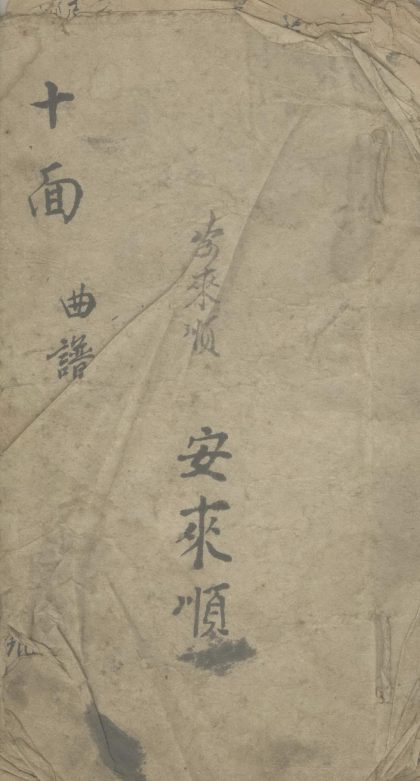 十面
曲譜
安來順
安來順